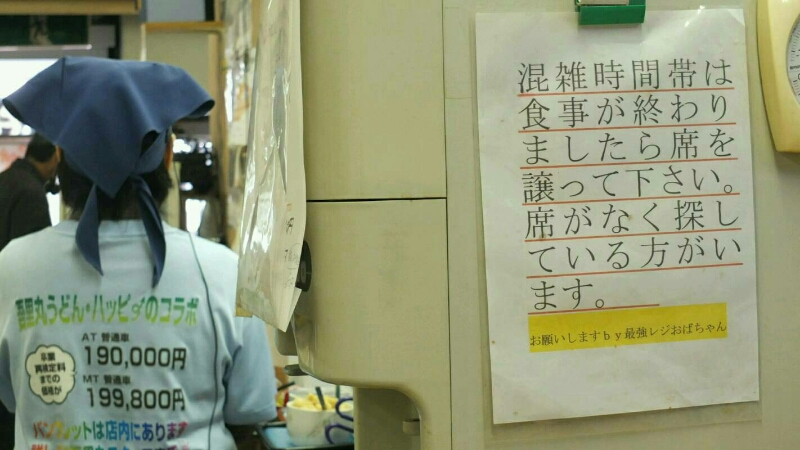 混雑時間帯は
食事が終わり
ましたら席を
譲って下さい。
席がなく探し
ている方がい
ます。
お願いしますby最強レジおばちゃん
吾里丸うどん・ハッピィのコラボ
AT 普通車
190,000円
MT 普通車
199,800円
卒業
再検定料
までの
価格が
パンフレットは店内にあります